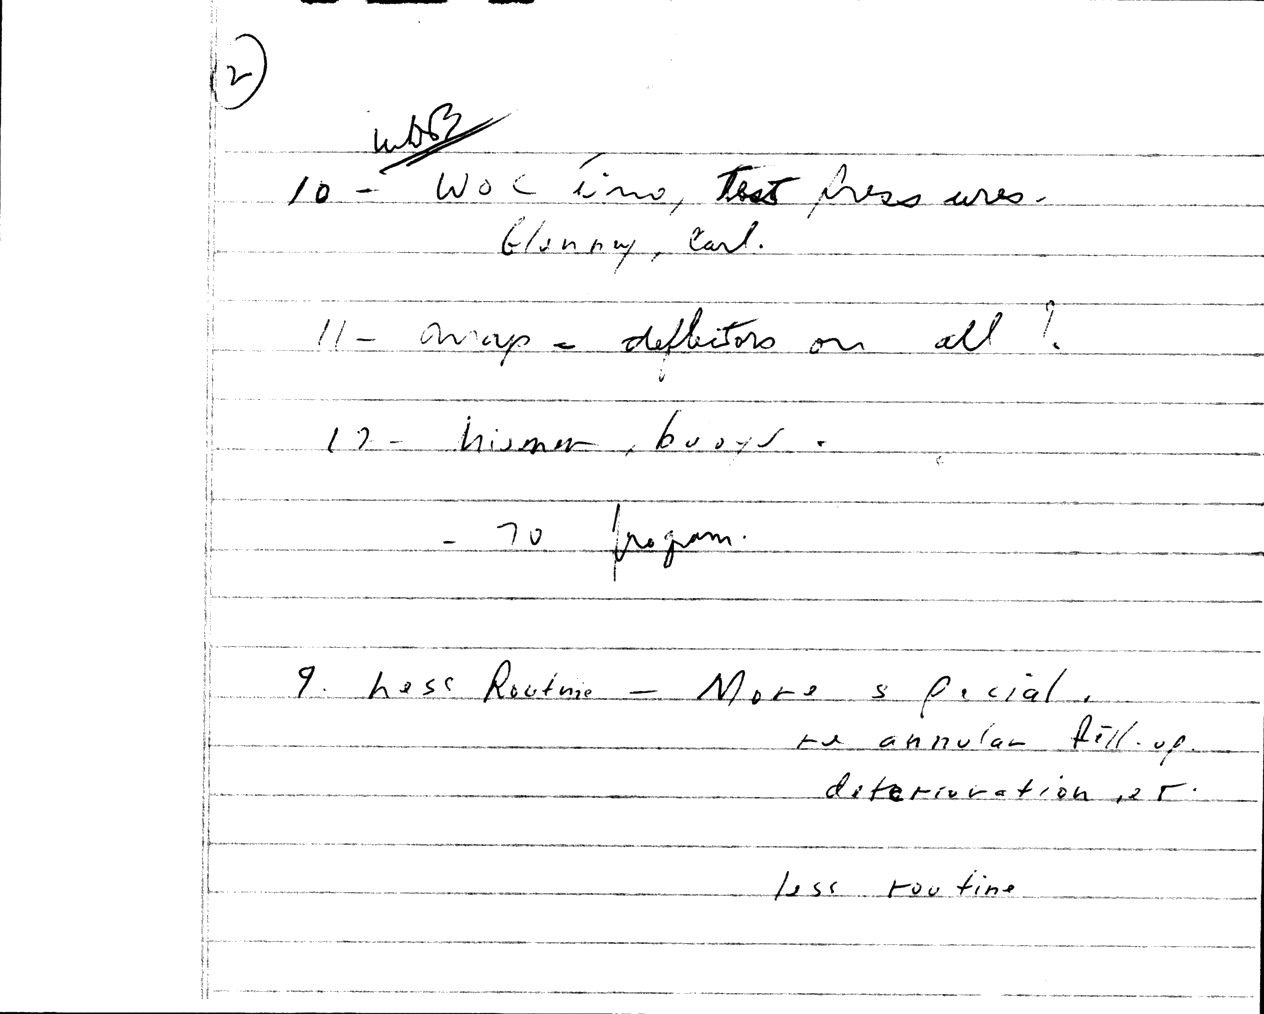 2
10 - WOC time, Test pressures.
Glenny, Carl.
11 - deflectors on all ?
12 - , buoys.
- 70 program.
9. Less Routine — More special.
re annular fill-up.
deterioration, et.
less routine